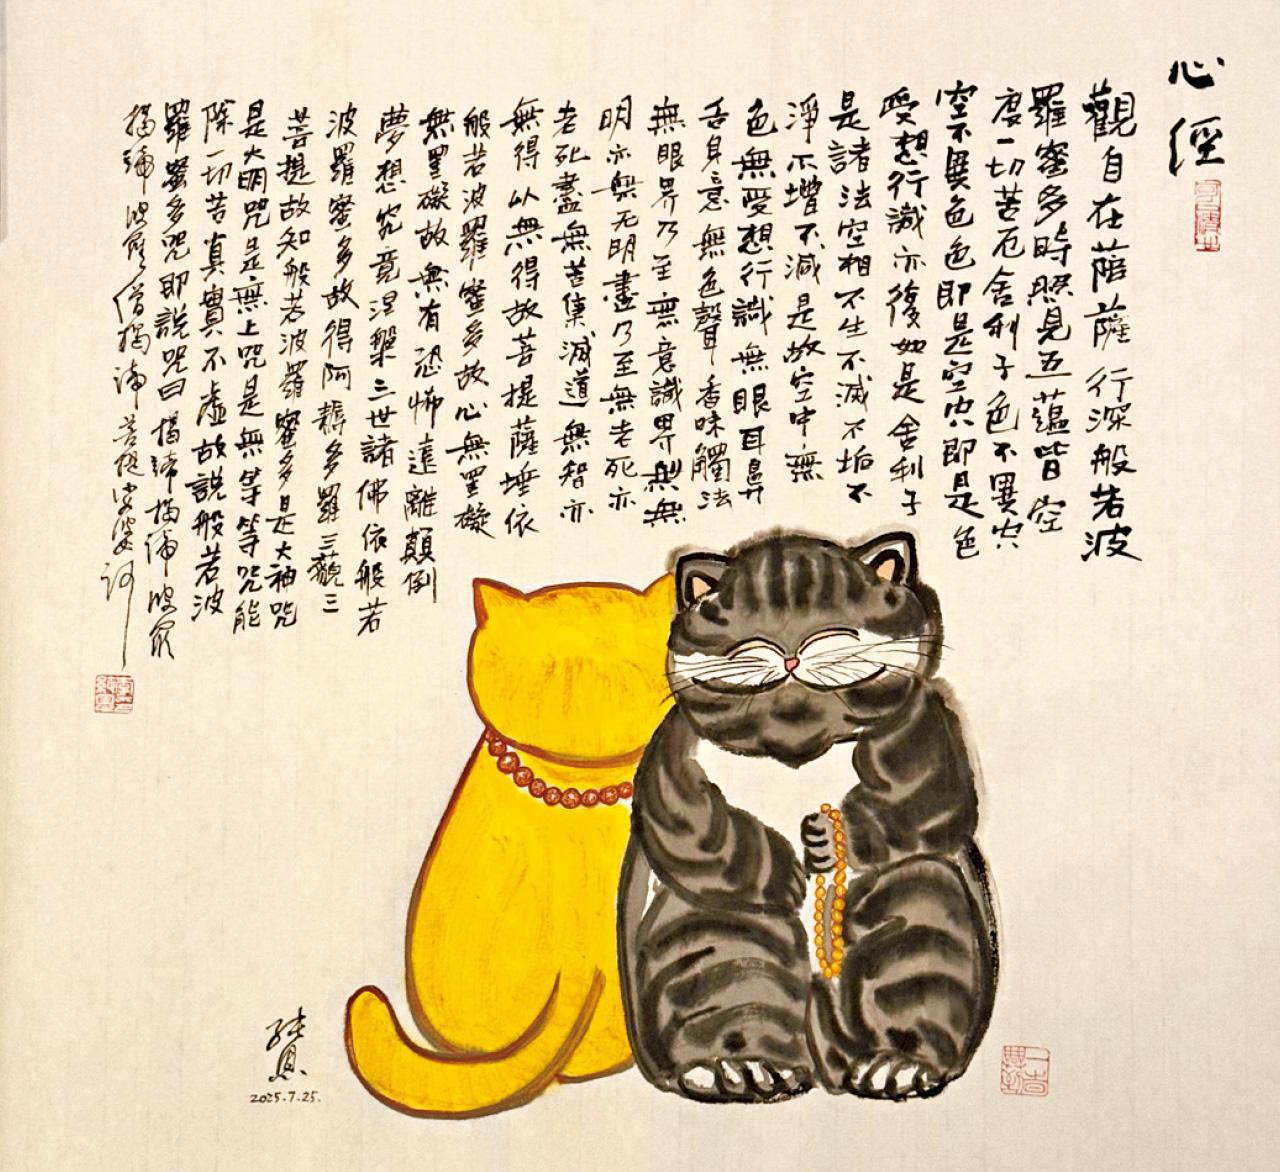 心經
觀自在菩薩行深般若波
羅蜜多時照見五蘊皆空
度一切苦厄舍利子色不異空
空不異色色即是空空即是色
受想行識亦復如是舍利子
是諸法空相不生不滅不垢不
淨不增不減是故空中無
色無受想行識無眼耳鼻
舌身意無色聲香味觸法
無眼界乃至無意識界無無
明亦無无明盡乃至無老死亦
老死盡無苦集滅道無智亦
無得以無得故菩提薩埵依
般若波羅蜜多故心無罣礙
無罣礙故無有恐怖遠離顛倒
夢想究竟涅槃三世諸佛依般若
波羅蜜多故得阿耨多羅三藐三
菩提故知般若波羅蜜多是大神咒
是大明咒是無上咒是無等等咒能
除一切苦真實不虛故說般若波
羅蜜多咒即說咒曰揭諦揭諦波羅
揭諦波羅僧揭諦菩提娑婆訶
2025.7.25.